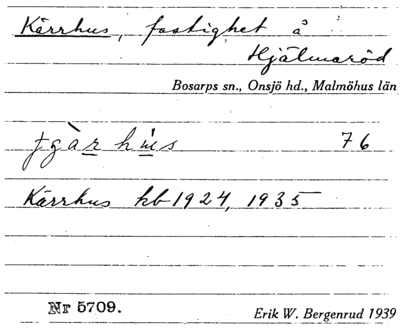 Kärrhus, fastighet å
Hjälmaröd
Bosarps sn., Onsjö hd., Malmöhus län
76
Kärrhus kb 1924, 1935
Nr 5709.
Erik W. Bergenrud 1939